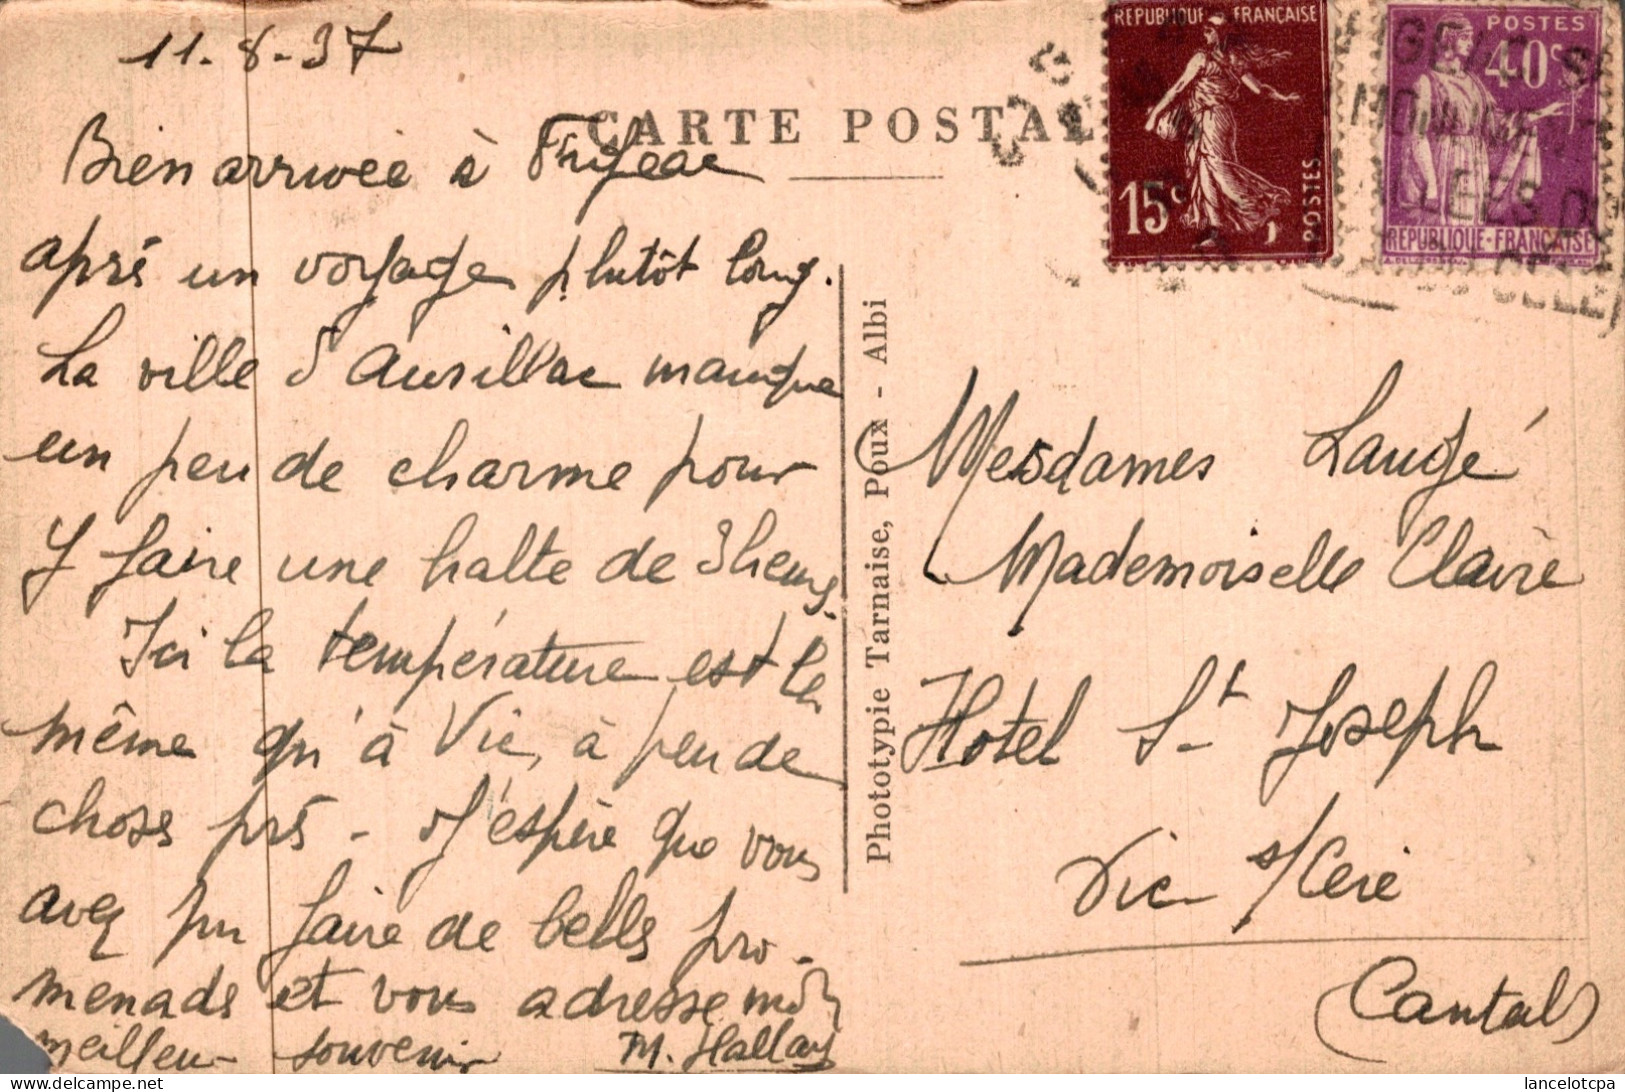 11-8-37
CARTE POSTALE
Bien arrivée à Figeac
après un voyage plutôt long.
La ville d'Aurillac manque
un peu de charme pour
y faire une halte de 3 heures.
Ici la température est la
même qu'à Vic, à peu de
choses près - J'espère que vous
avez pu faire de belles pro-
menades et vous adresse mon
meilleur souvenir M. Hallay
REPUBLIQUE FRANÇAISE
15c
POSTES
POSTES
40c
REPUBLIQUE-FRANÇAISE
FIGEAC S
Phototypie Tarnaise, Poux - Albi
Mesdames Laugé
Mademoiselle Claire
Hotel St Joseph
Vic s/Cère
(Cantal)
www.lancelotcpa